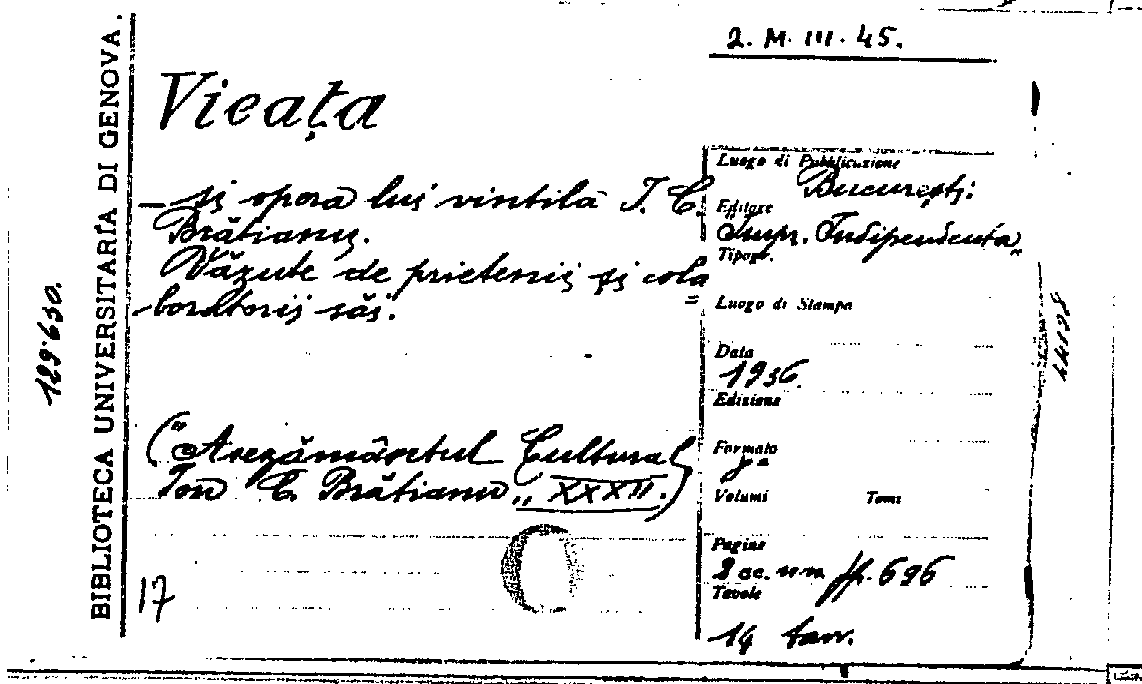 2. M. III. 45.
Vieața
— și opera lui vintilă I. C.
Brătianu.
Văzute de prietenii și cola=
boratorii săi.
("Așezământul Cultural
Ion C. Brătianu„ XXXII.)
17
BIBLIOTECA UNIVERSITARIA DI GENOVA.
129.630.
Luogo di Pubblicazione
București:
Editore
"Imp. Indipendenta„
Tipogr.
Luogo di Stampa
Data
1936.
Edizione
Formato
Volumi Tomi
Pagine
2 cc. nn. pp. 696
Tavole
14 tav.